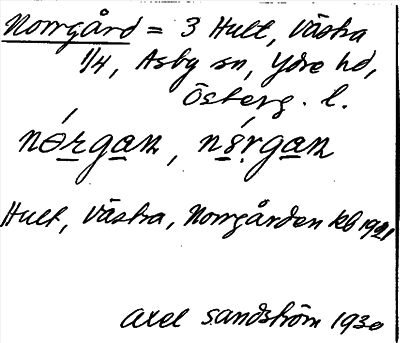 Norrgård = 3 Hult, Västra
1/4, Asby sn, Ydre hd,
Österg. l.
Hult, Västra, Norrgården kb
Axel Sandström 1930